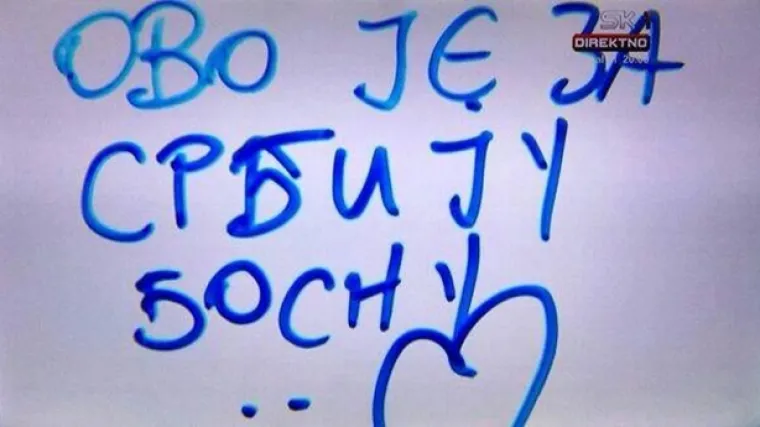 ОВО ЈЕ ЗА
SK 1
DIREKTNO
20:00
СРБИЈУ
БОСНУ